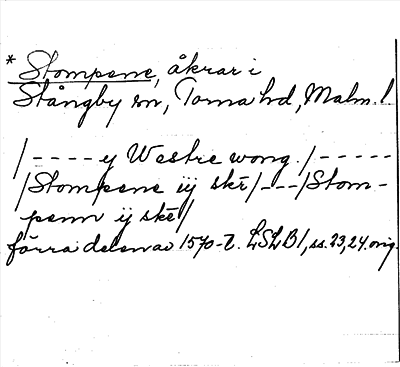 * Stompene, åkrar i
Stångby sn, Torna hd, Malm. l.
/----y Westre wong./-----
/Stompene iij skē/---/Stom-
penn ij skē/
förra delen av 1570-t. LSLB1, ss. 23, 24. orig.